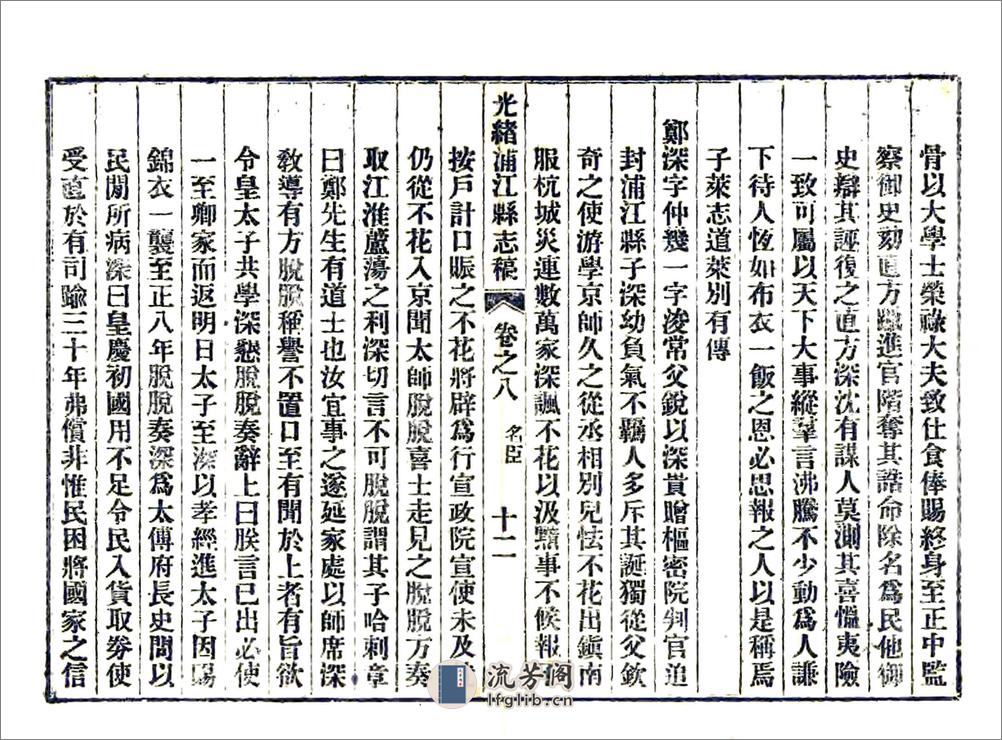 骨以大學士榮祿大夫致仕食俸賜終身至正中監
察御史劾直方躐進官階奪其誥命除名爲民他御
史辯其誣復之直方深沈有謀人莫測其喜慍夷險
一致可屬以天下大事縱羣言沸騰不少動爲人謙
下待人恆如布衣一飯之恩必思報之人以是稱焉
子萊志道萊別有傳
鄭深字仲幾一字浚常父銳以深貴贈樞密院判官追
封浦江縣子深幼負氣不羈人多斥其誕獨從父欽
奇之使游學京師久之從丞相別兒怯不花出鎭南
服杭城災連數萬家深諷不花以汲黯事不候報
按戶計口賑之不花將辟爲行宣政院宣使未及
仍從不花入京聞太師脫脫喜士走見之脫脫方奏
取江淮蘆蕩之利深切言不可脫脫謂其子哈剌章
曰鄭先生有道士也汝宜事之遂延家處以師席深
敎導有方脫脫稱譽不置口至有聞於上者有旨欲
令皇太子共學深懇脫脫奏辭上曰朕言已出必使
一至卿家而返明日太子至深以孝經進太子因賜
錦衣一襲至正八年脫脫奏深爲太傅府長史問以
民間所病深曰皇慶初國用不足令民入貨取劵使
受直於有司踰三十年弗償非惟民困將國家之信
光緒浦江縣志稿
卷之八
名臣
十二
流芳阁
lfglib.cn